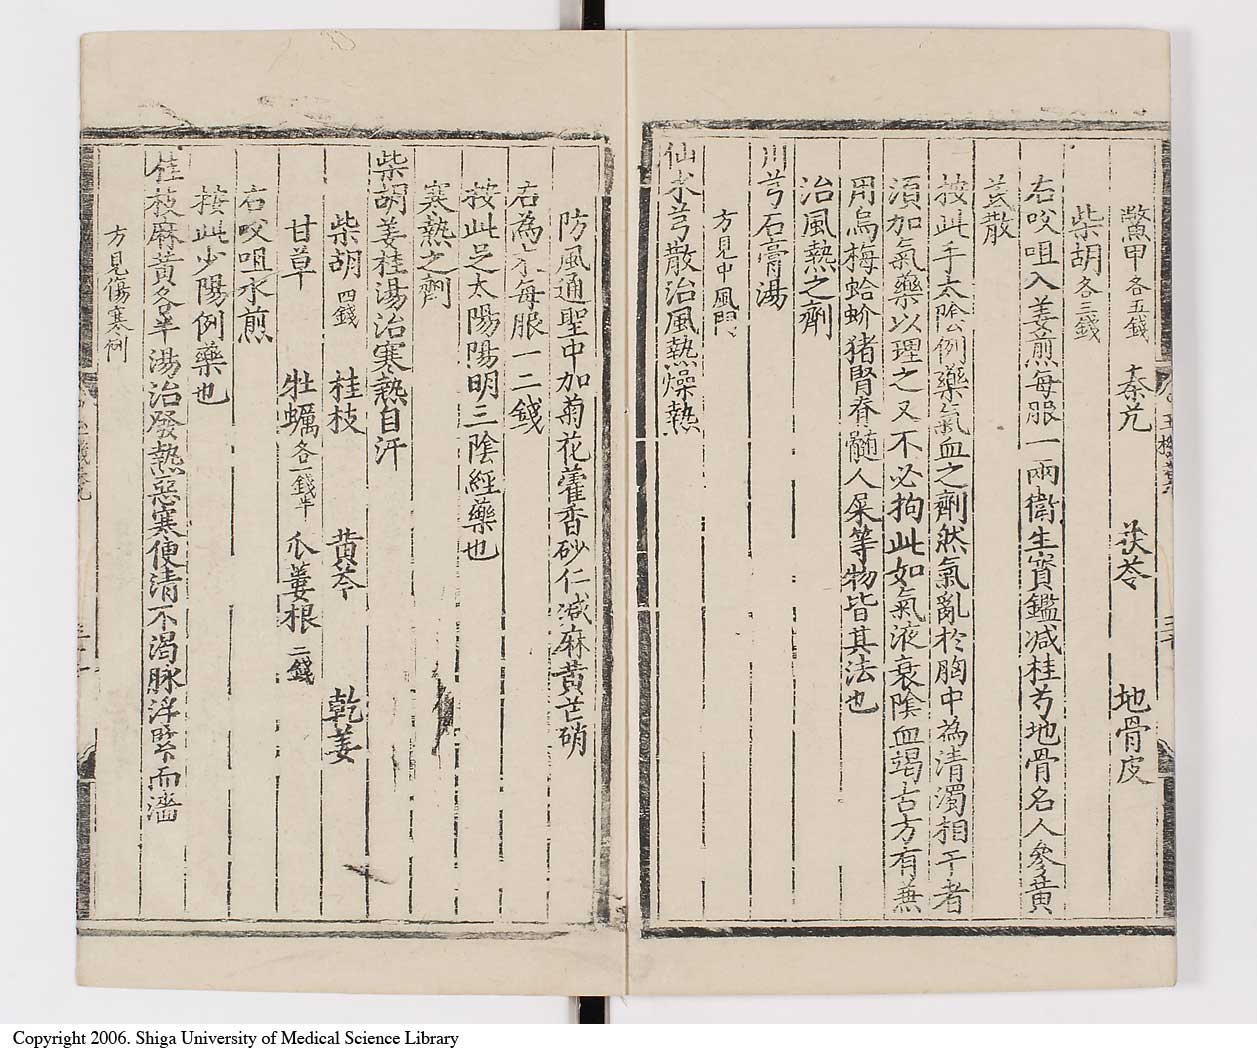 鱉甲各五錢 秦艽 茯苓 地骨皮
柴胡各三錢
右㕮咀入姜煎每服一兩衛生寳鑑减桂芍地骨名人參黄
芪散
按此手太陰例藥氣血之劑然氣亂於胸中為清濁相干者
須加氣藥以理之又不必拘此如氣液衰陰血竭古方有兼
用烏梅蛤蚧猪腎脊髓人屎等物皆其法也
治風熱之劑
川芎石膏湯
方見中風門
仙朮芎散治風熱燥熱
防風通聖中加菊花藿香砂仁减麻黄芒硝
右為末每服一二錢
按此足太陽陽明三陰經藥也
寒熱之劑
柴胡姜桂湯治寒熱自汗
柴胡四錢 桂枝 黄芩 乾姜
甘草 牡蠣各一錢半 瓜蔞根二錢
右㕮咀水煎
按此少陽例藥也
桂枝麻黄各半湯治發熱惡寒便清不渴脉浮緊而濇
方見傷寒例